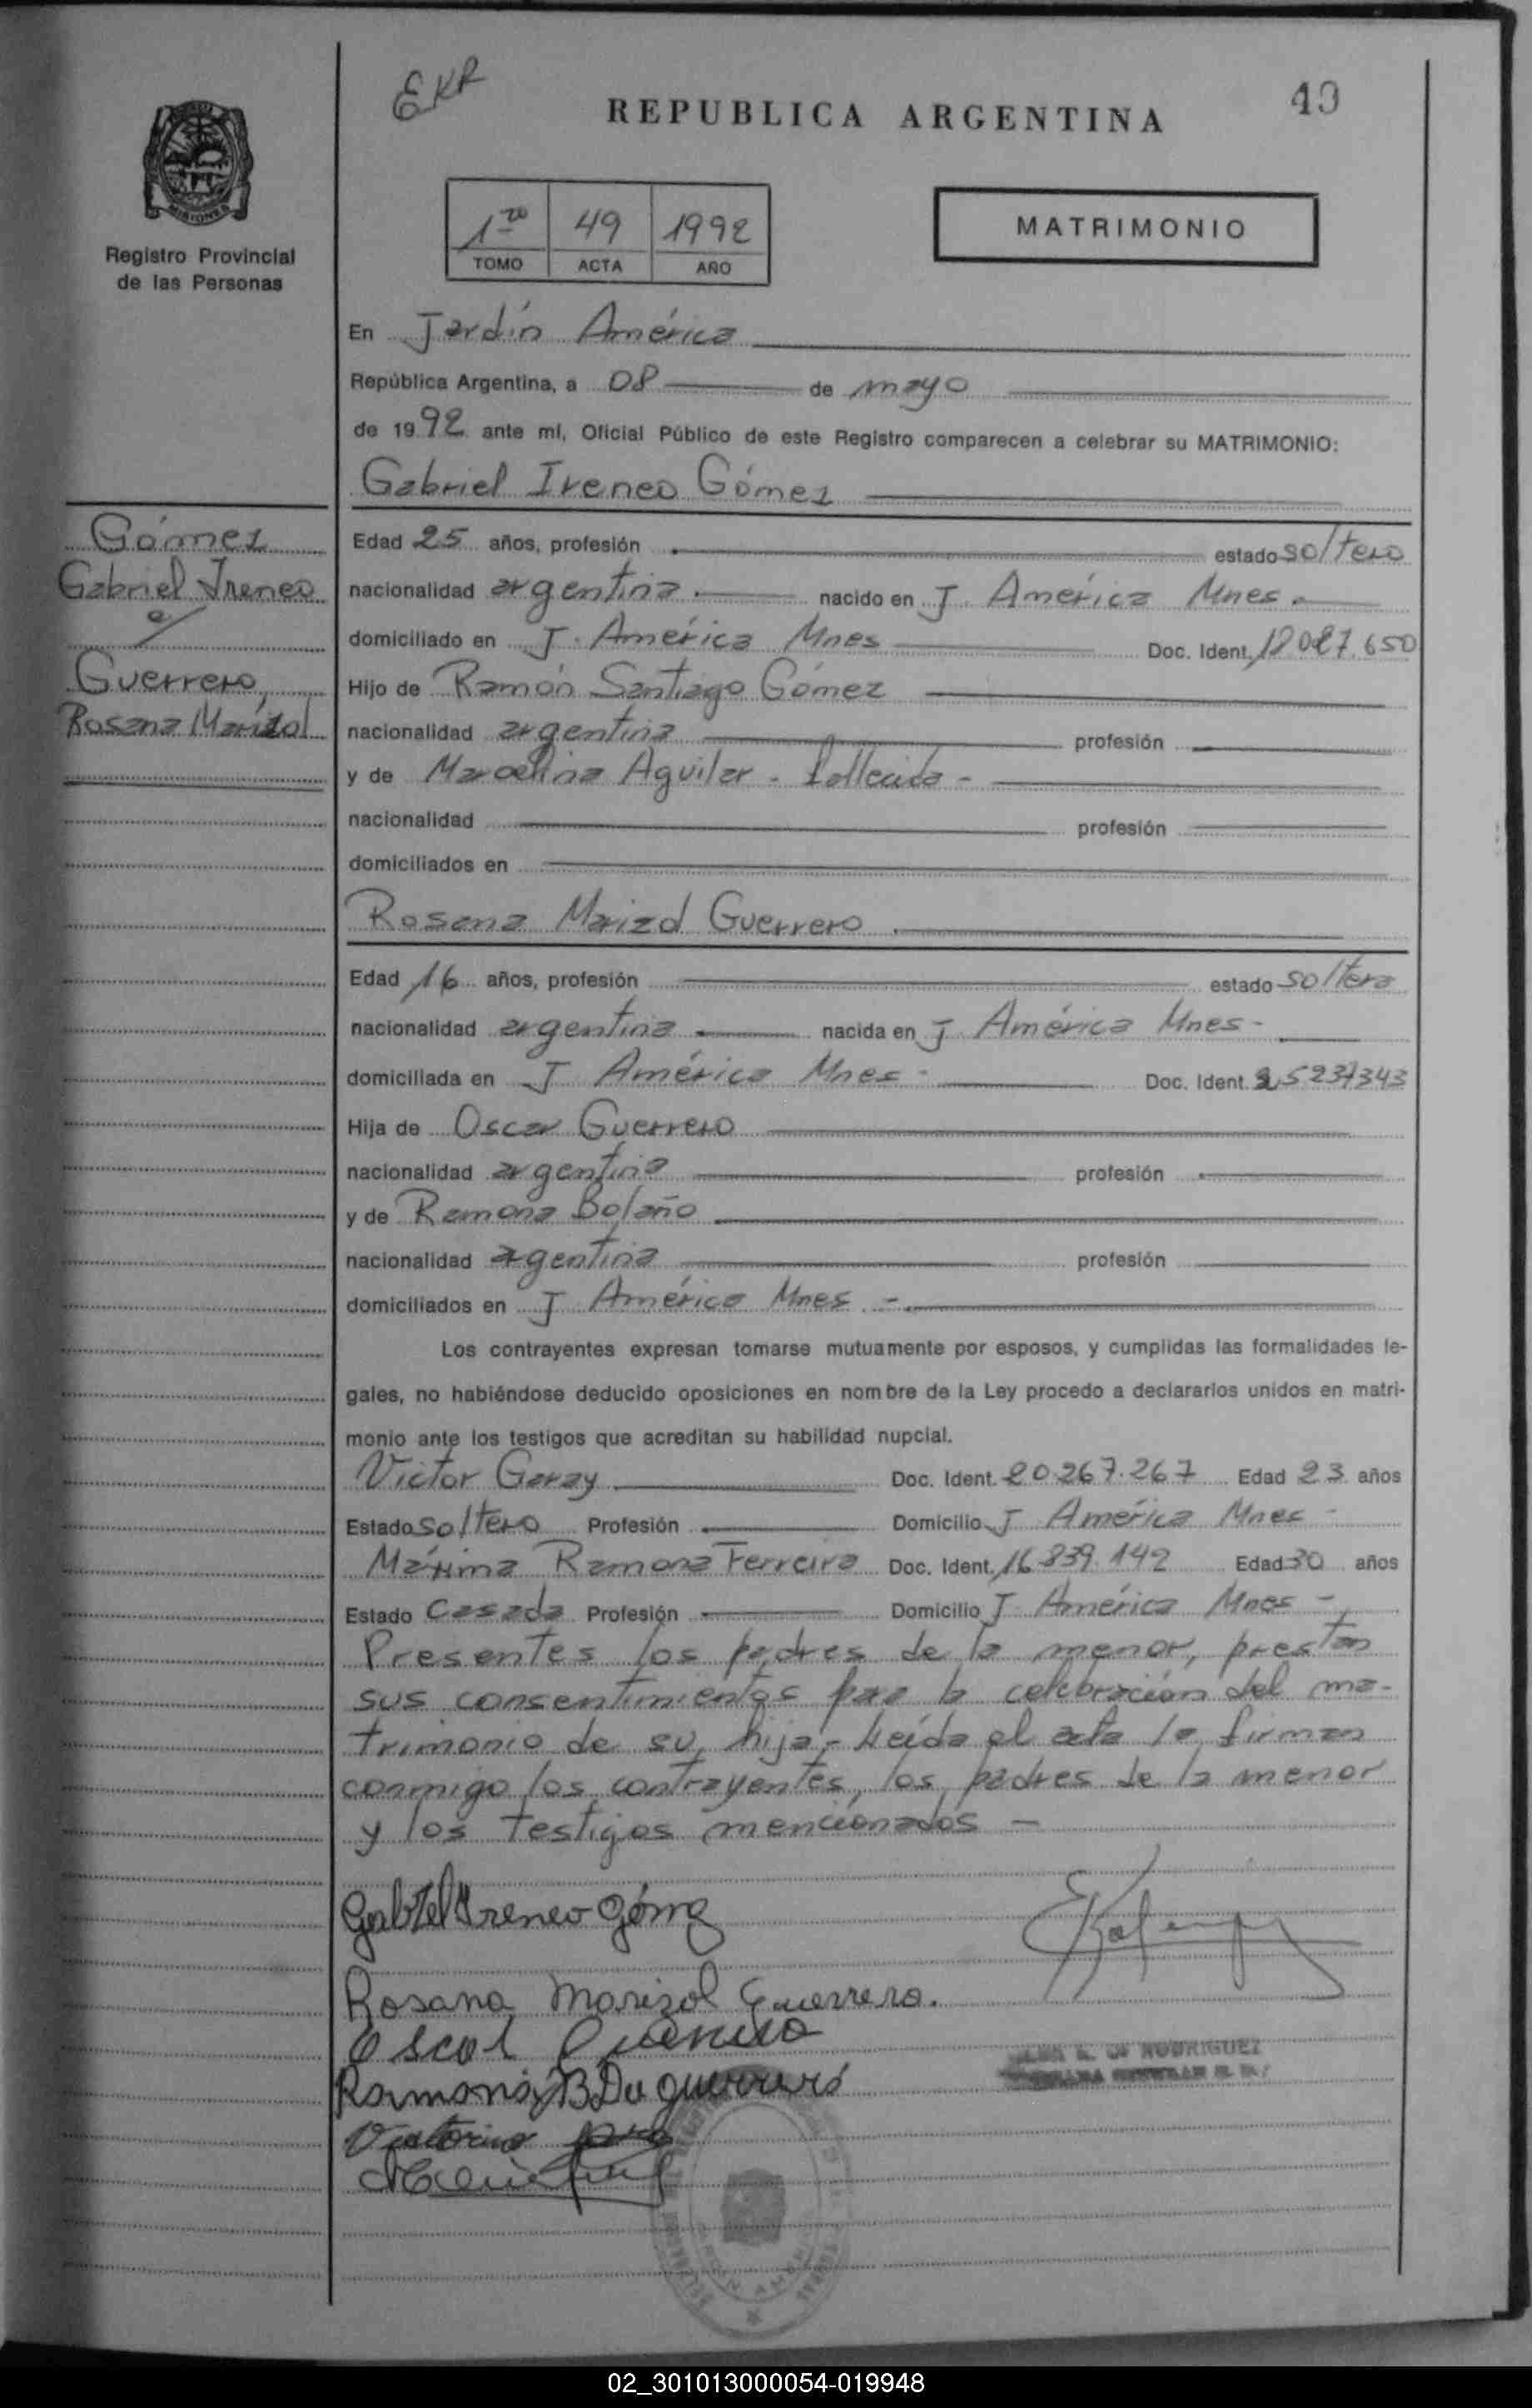 EKR
REPUBLICA ARGENTINA
49
MISIONES
Registro Provincial
de las Personas
1ro 49 1992
TOMO ACTA AÑO
MATRIMONIO
En Jardín América
República Argentina, a 08 de mayo
de 1992 ante mí, Oficial Público de este Registro comparecen a celebrar su MATRIMONIO:
Gabriel Ireneo Gómez
Gómez
Gabriel Ireneo
c/
Guerrero,
Rosana Marizol
Edad 25 años, profesión estado soltero
nacionalidad argentina nacido en J. América Mnes.
domiciliado en J. América Mnes Doc. Ident.
Hijo de Ramón Santiago Gómez
nacionalidad argentina profesión
y de Marcelina Aguilar - fallecida -
nacionalidad profesión
domiciliados en
Rosana Marizol Guerrero
Edad 16 años, profesión estado soltera
nacionalidad argentina nacida en J. América Mnes -
domiciliada en J América Mnes - Doc. Ident.
Hija de Oscar Guerrero
nacionalidad argentina profesión
y de Ramona Bolaño
nacionalidad argentina profesión
domiciliados en J América Mnes -
Los contrayentes expresan tomarse mutuamente por esposos, y cumplidas las formalidades le-
gales, no habiéndose deducido oposiciones en nombre de la Ley procedo a declararlos unidos en matri-
monio ante los testigos que acreditan su habilidad nupcial.
Victor Garay Doc. Ident. 20.267.267 Edad 23 años
Estado soltero Profesión Domicilio J América Mnes -
Máxima Ramona Ferreira Doc. Ident. 16.839.142 Edad 30 años
Estado Casada Profesión Domicilio J América Mnes -
Presentes los padres de la menor, prestan
sus consentimientos para la celebración del ma-
trimonio de su hija.- Leída el acta la firman
conmigo los contrayentes, los padres de la menor
y los testigos mencionados -
Gabriel Ireneo Gómez
Rosana Marizol Guerrero.
Oscar Guerrero
Ramona B De guerrero
RODRIGUEZ
02_301013000054-019948